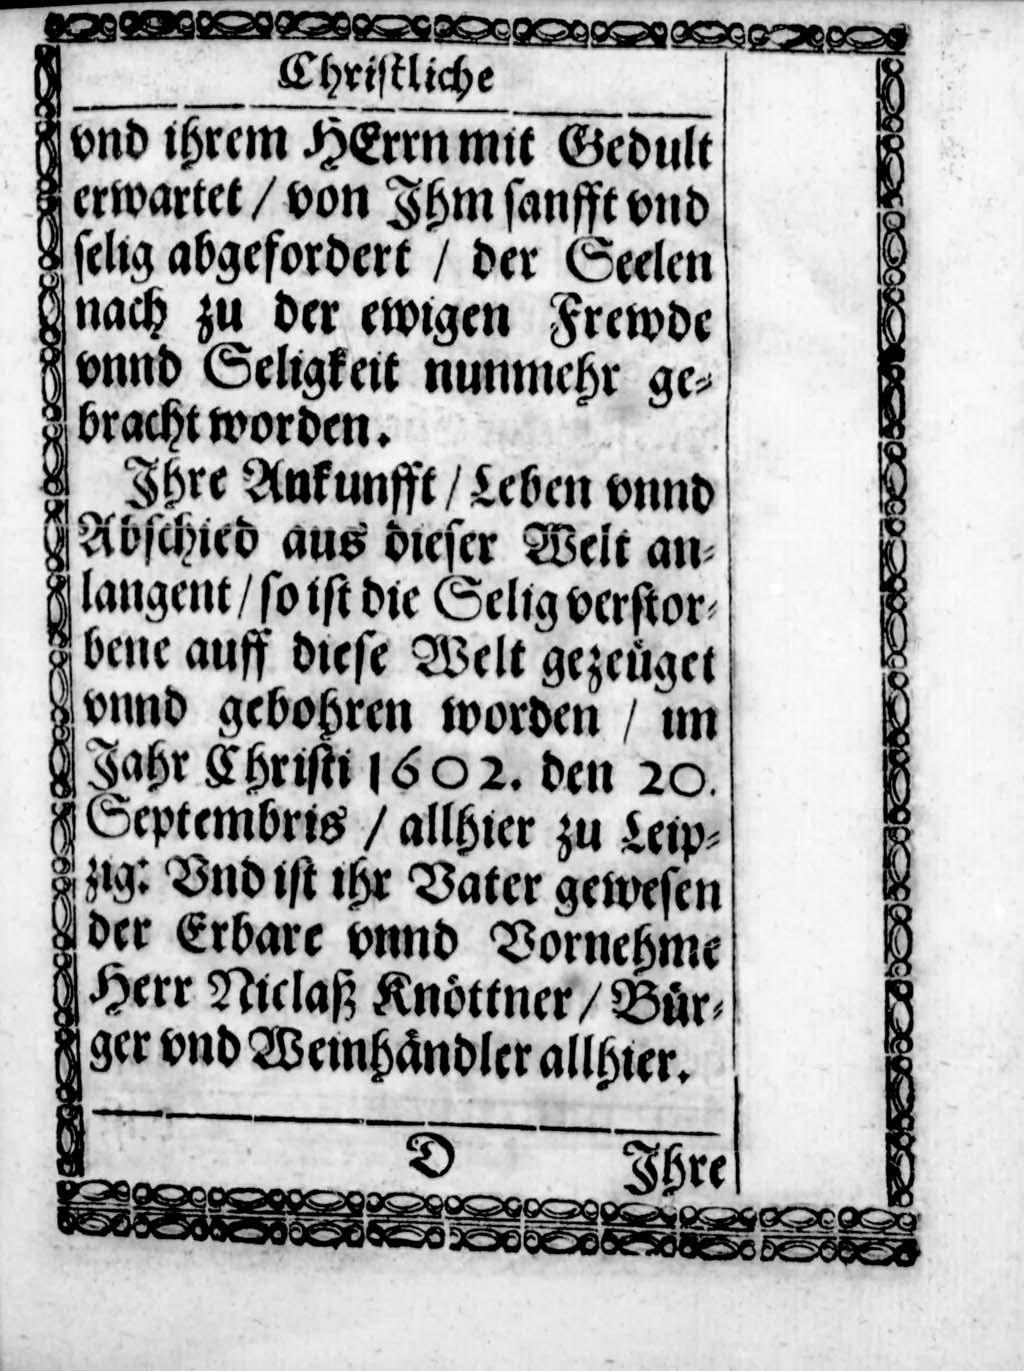 Christliche
vnd ihrem HErrn mit Gedult
erwartet / von Ihm sanfft vnd
selig abgefordert / der Seelen
nach zu der ewigen Frewde
vnnd Seligkeit nunmehr ge-
bracht worden.
Ihre Ankunfft / Leben vnnd
Abschied aus dieser Welt an-
langent / so ist die Selig verstor-
bene auff diese Welt gezeuget
vnnd gebohren worden / im
Jahr Christi 1602. den 20.
Septembris / allhier zu Leip-
zig: Vnd ist ihr Vater gewesen
der Erbare vnnd Vornehme
Herr Niclaß Knöttner / Bür-
ger vnd Weinhändler allhier.
D Ihre